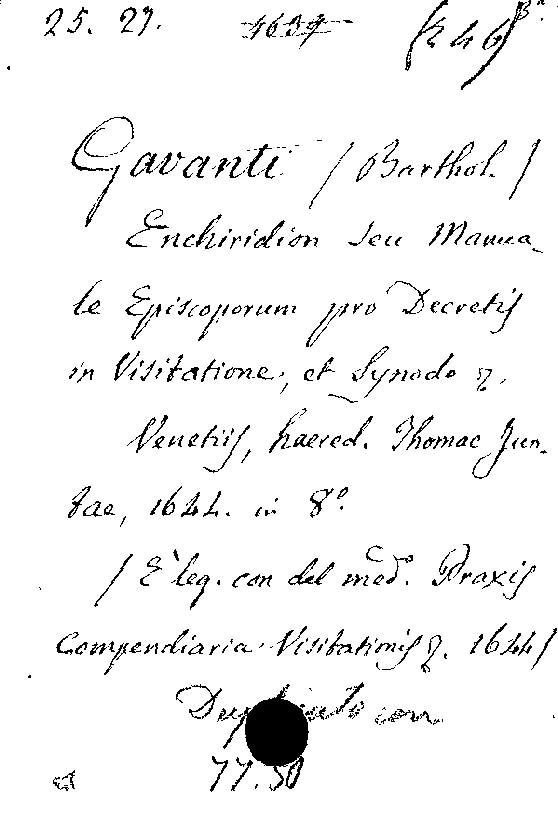 25. 27. 4637 (Z 46)
Gavanti / Barthol. /
Enchiridion seu Manua-
le Episcoporum pro Decretis
in Visitatione, et Synodo &.
Venetiis, haered. Thomae Jun-
tae, 1644. in 8º
/ È leg. con del medº. Praxis
Compendiaria Visitationis &. 1644 /
con
77.50